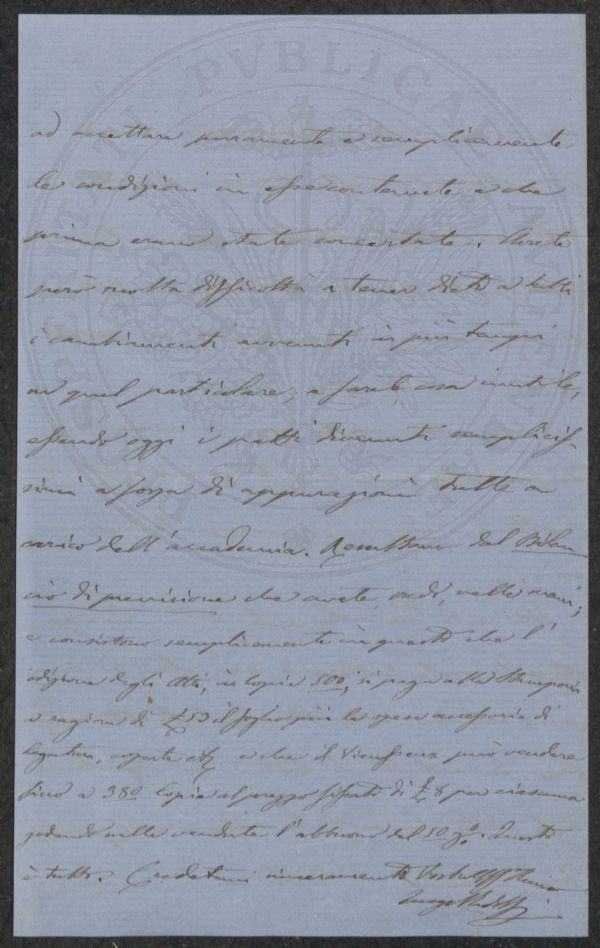 ad accettare puramente e semplicemente
le condizioni in esse contenute e che
prima erano state concertate. Avrete
però molta difficoltà a tener dietro a tutti
i cambiamenti avvenuti in più tempi
in quel particolare, e sarebbe cosa inutile,
essendo oggi i patti divenuti semplicis-
simi a forza di appurazioni tutte a
carico dell'accademia. Resultano dal Bilan
cio di previsione che avete nelle mani;
e consistono semplicemente in questo che l'
edizione degli Atti, in copie 500, si paga alla Stamperia
a ragione di £ 53 il foglio più le spese accessorie di
legatura, coperte e che il Vieusseux può vendere
fino a 380 copie al prezzo fissato di £ 8 per ciascuna
godendo nelle vendute l'abbuono del 50 %. Questo
è tutto. Credetemi sinceramente